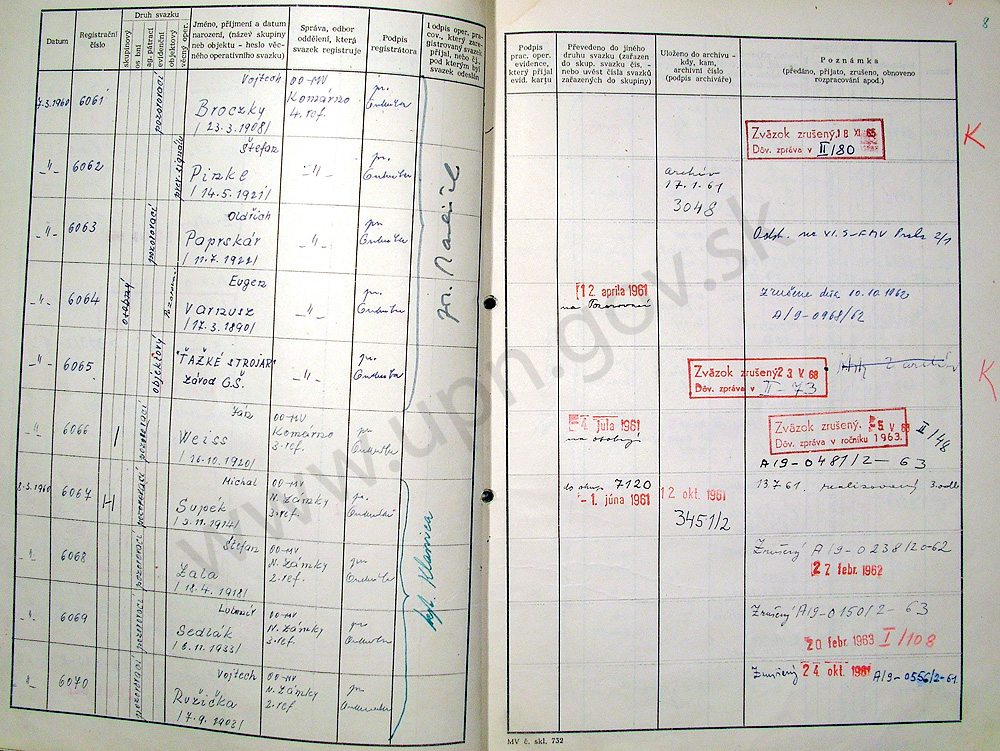 8
Datum
Registrační číslo
Druh svazku
skupinový
os bní
ag. pátrací
evidenční
objektový
věcný oper.
Jméno, příjmení a datum
narození, (název skupiny
neb objektu - heslo věc-
ného operativního svazku)
Správa, odbor
oddělení, která
svazek registruje
Podpis
registrátora
Podpis oper. prac-
cov., který zare-
gistrovaný svazek
přijal, nebo čj.
pod kterým byl
svazek odeslán
Podpis
prac. oper.
evidence,
který přijal
evid. kartu
Převedeno do jiného
druhu svazku (zařazen
do skup. svazku čís. -
nebo uvést čísla svazků
zařazených do skupiny)
Uloženo do archivu -
kdy, kam,
archivní číslo
(podpis archiváře)
Poznámka
(předáno, přijato, zrušeno, obnoveno
rozpracování apod.)
7.3.1960 6061 pozorovací
Vojtech
Broczky
/23.3.1908/
OO-MV
Komárno
4. ref.
Zväzok zrušený 18 XI. 65
Dôv. zpráva v II/80
K
-"- 6062
Štefan
Pinke
/14.5.1921/
-"-
archív
17.1.61
3048
-"- 6063 pozorovací
Oldřich
Paprskár
/11.7.1922/
-"-
-"- 6064 osobný
Eugen
Varmusz
/17.3.1890/
-"-
12. apríla 1961
na Pozorovací
Zrušené dňa 10.10.1962
A/9-0968/62
-"- 6065 objektový
"ŤAŽKÉ STROJÁR"
závod GŠ.
-"-
Zväzok zrušený 23 V. 68
Dôv. zpráva v II-73
K
-"- 6066 pozorovací
Ján
Weiss
/16.10.1920/
OO-MV
Komárno
3. ref.
4. júla 1961
na osobný
Zväzok zrušený.
Dôv. zpráva v ročníku 1963.
II/48
A/9-0481/2-63
8.3.1960 6067 H pozorovací
Michal
Supek
/3.11.1914/
OO-MV
N. Zámky
3. ref.
do skup. 7120
-1. júna 1961
12 okt. 1961
3451/2
13761. realizovaný
-"- 6068 pozorovací
Štefan
Zala
/18.4.1918/
OO-MV
N. Zámky
2. ref.
Zrušený A/9-0238/20-62
27 febr. 1962
-"- 6069 pozorovací
Ľubomír
Sedlák
/6.11.1933/
OO-MV
N. Zámky
3. ref.
Zrušený A/9-0150/2-63
20 febr. 1963 I/108
-"- 6070 pozorovací
Vojtech
Ružička
/7.9.1903/
OO-MV
N. Zámky
2. ref
Zrušený 24 okt. 1961 A/9-0556/2-61
kpt. Klamica
MV č. skl. 732
www.upn.gov.sk